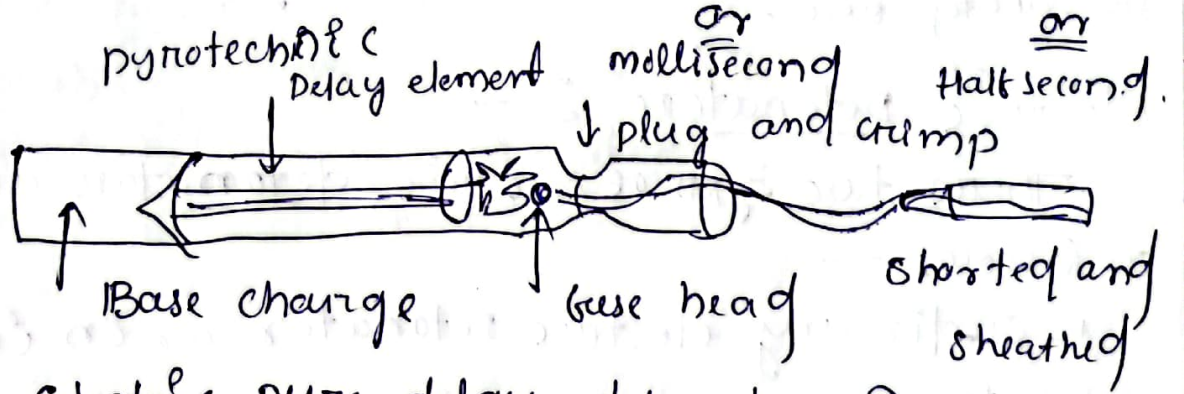 or
or
pyrotechnic
Delay element
millisecond
Half second.
plug and crimp
Base charge
fuse head
shorted and
sheathed